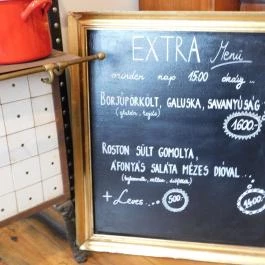 EXTRA Menü
minden nap 1500 óráig...
BORJÚPÖRKÖLT, GALUSKA, SAVANYÚSÁG
(glutén, tojás)
1600.-
ROSTON SÜLT GOMOLYA,
ÁFONYÁS SALÁTA MÉZES DIÓVAL...
+ Leves...
500.-
1400.-